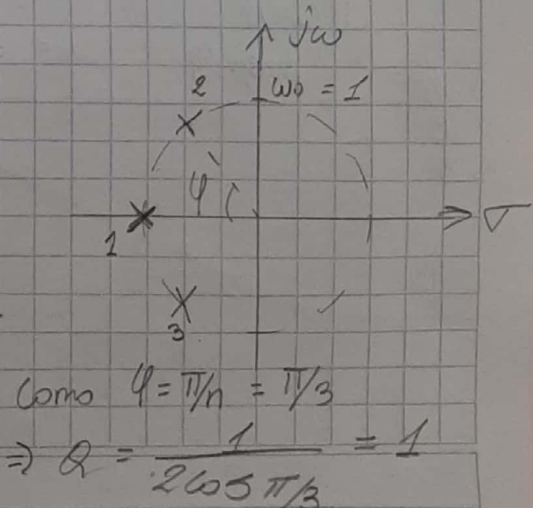 jω
2
ω₀ = 1
φ
1
σ
3
Como φ = π/n = π/3
⇒ Q = 1 / (2 cos π/3) = 1